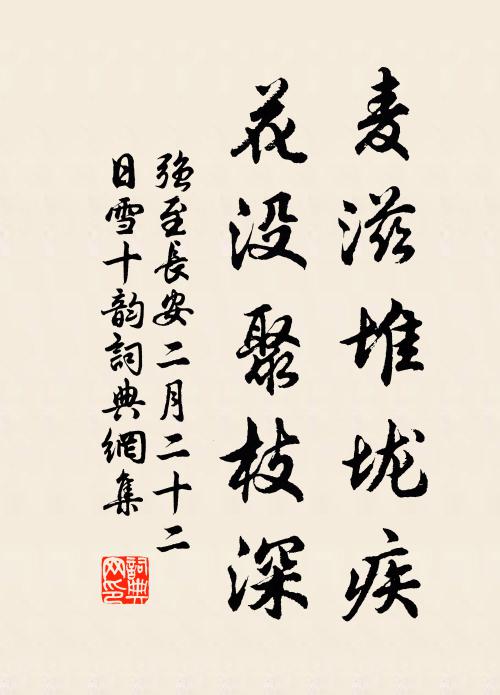 麦滋堆垅疾
花没聚枝深
强至長安二月二十二
日雪十韵詞典網集
詞典网印